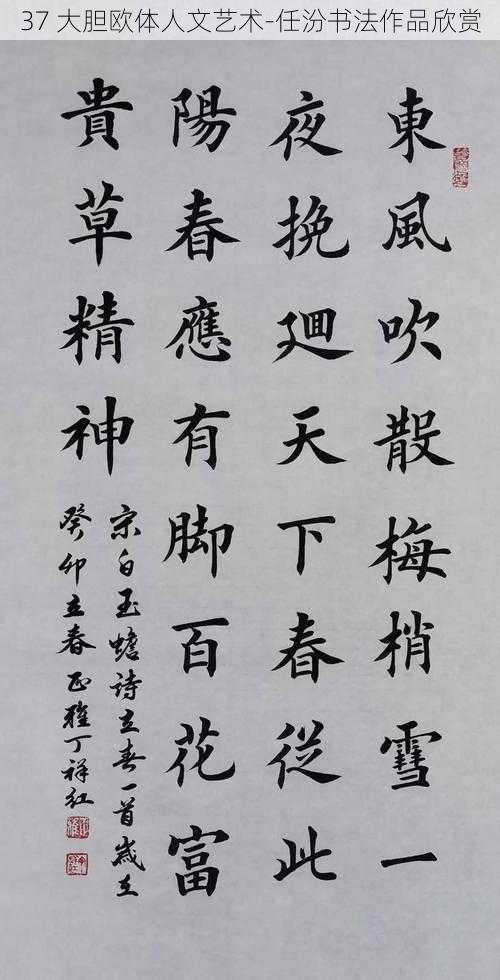 37 大胆欧体人文艺术-任汾书法作品欣赏
東風吹散梅梢雪一
夜挽廻天下春從此
陽春應有脚百花富
貴草精神
宋白玉蟾诗立春一首歲在
癸卯立春 正雅丁祥红